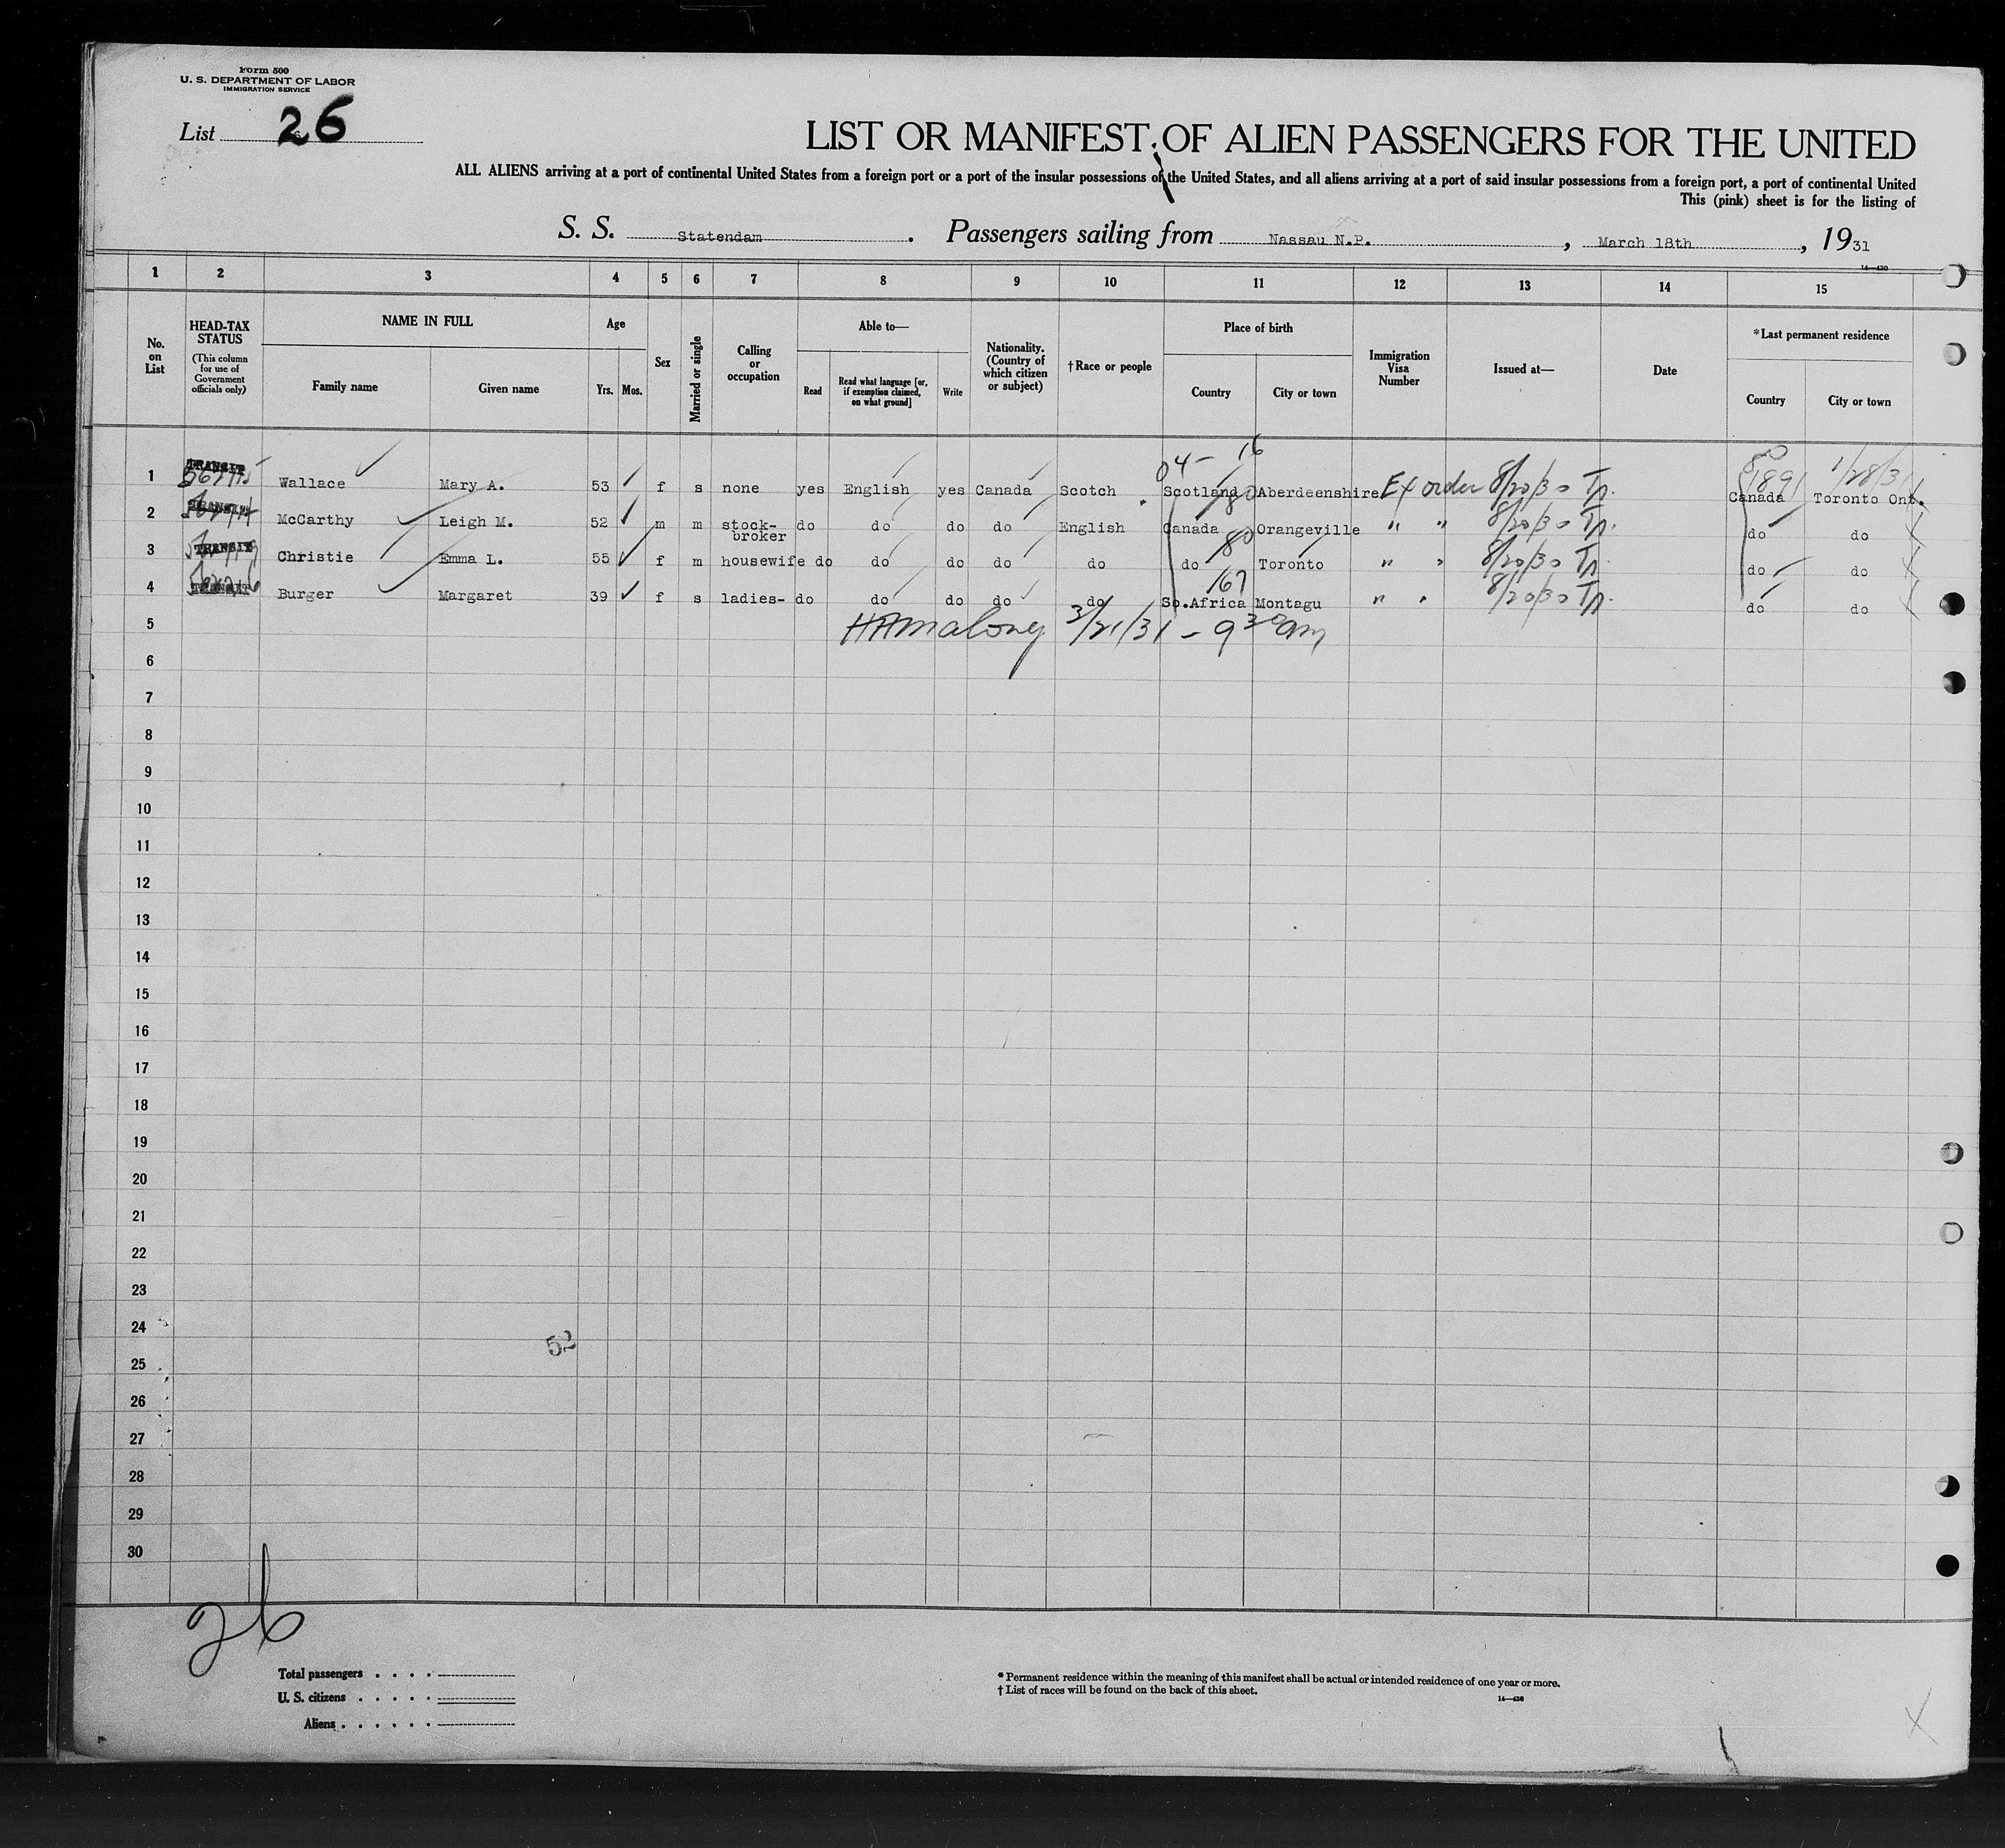 Form 500
U. S. DEPARTMENT OF LABOR
IMMIGRATION SERVICE
List 26
LIST OR MANIFEST OF ALIEN PASSENGERS FOR THE UNITED
ALL ALIENS arriving at a port of continental United States from a foreign port or a port of the insular possessions of the United States, and all aliens arriving at a port of said insular possessions from a foreign port, a port of continental United
This (pink) sheet is for the listing of
S. S. Statendam. Passengers sailing from Nassau N.P., March 18th, 1931
14—430
1 2 3 4 5 6 7 8 9 10 11 12 13 14 15
No. on List
HEAD-TAX STATUS (This column for use of Government officials only)
NAME IN FULL
Family name
Given name
Age
Yrs. Mos.
Sex
Married or single
Calling or occupation
Able to—
Read
Read what language [or, if exemption claimed, on what ground]
Write
Nationality. (Country of which citizen or subject)
†Race or people
Place of birth
Country
City or town
Immigration Visa Number
Issued at—
Date
*Last permanent residence
Country
City or town
04- 16
1 TRANSIT Wallace Mary A. 53 f s none yes English yes Canada Scotch Scotland Aberdeenshire Ex order 8/20/30 Canada Toronto Ont. 1/28/31
2 TRANSIT McCarthy Leigh M. 52 m m stock-broker do do do do English Canada Orangeville " " 8/20/30 do do
3 TRANSIT Christie Emma L. 55 f m housewife do do do do do do 80 Toronto " " 8/20/30 do do
4 TRANSIT Burger Margaret 39 f s ladies- do do do do do So.Africa 167 Montagu " " 8/20/30 do do
5 3/21/31 - 9 30 am
6
7
8
9
10
11
12
13
14
15
16
17
18
19
20
21
22
23
24
52
25
26
27
28
29
30
26
Total passengers . . . .
U. S. citizens . . . . .
Aliens . . . . . .
* Permanent residence within the meaning of this manifest shall be actual or intended residence of one year or more.
† List of races will be found on the back of this sheet.
14—430